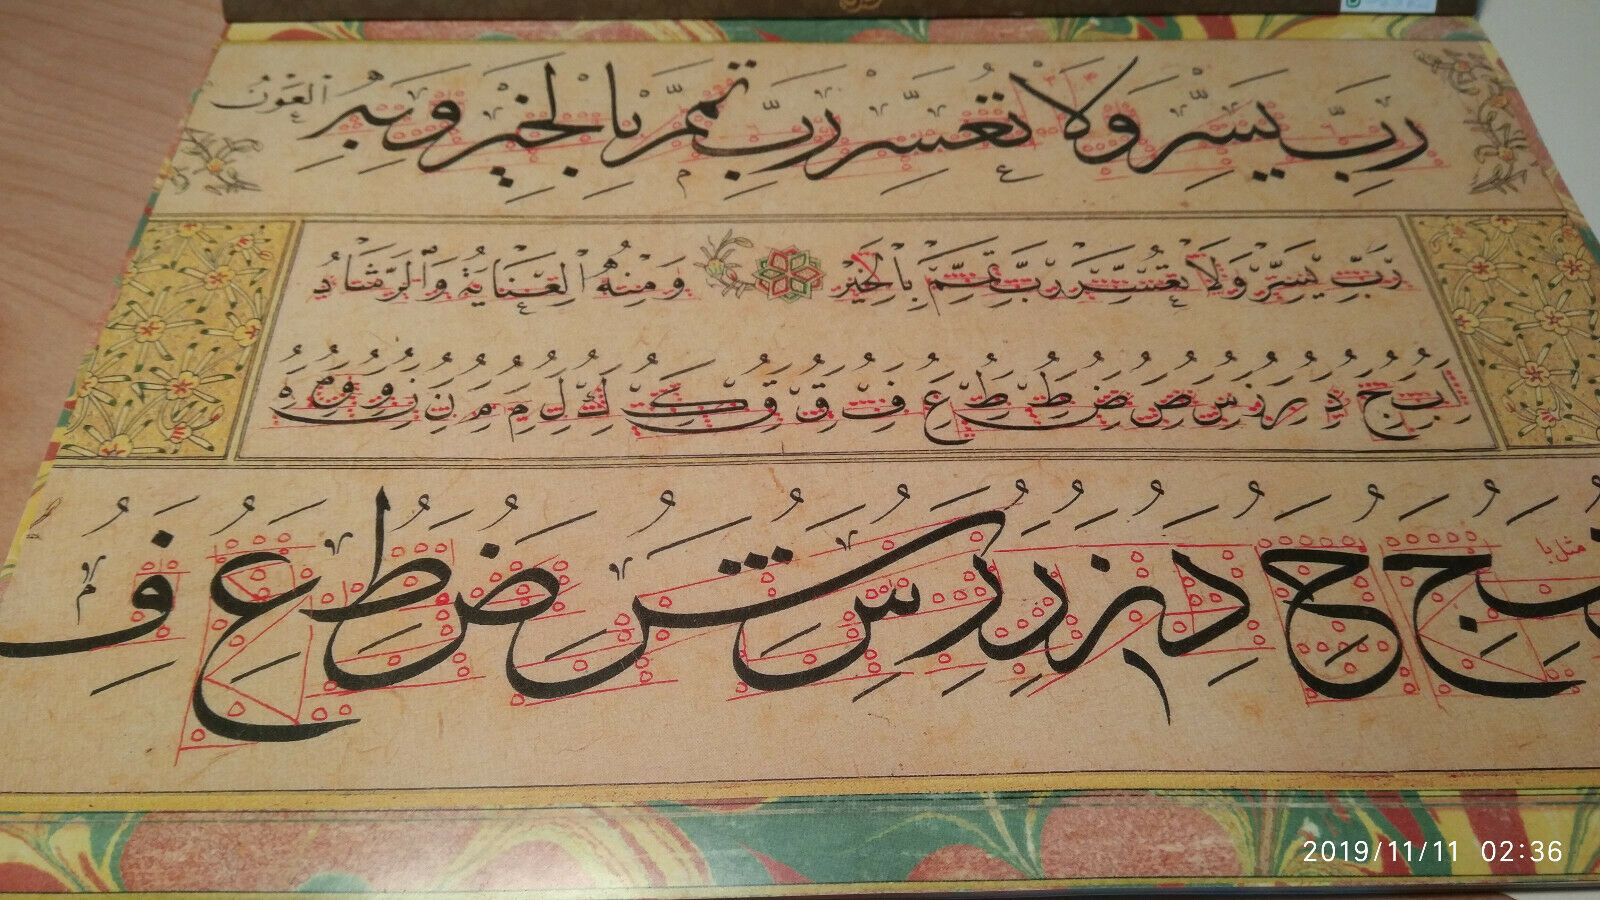 رَبِّ يَسِّرْ وَلَا تُعَسِّرْ رَبِّ تَمِّمْ بِالْخَيْرِ وَبِهِ الْعَوْنُ
رَبِّ يَسِّرْ وَلَا تُعَسِّرْ رَبِّ تَمِّمْ بِالْخَيْرِ وَمِنْهُ الْعِنَايَةُ وَالرَّشَادُ
ا ب ج د ر ز س ص ض ط ط ع ف ق ق ك ك ل م م ن ن و و ه
ب ج ح د ز ر ر س س ض ط ع ف
مثل با
2019/11/11 02:36